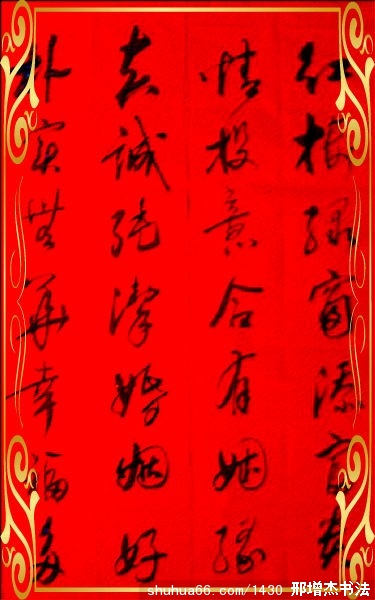 红根绿窗添富贵
情投意合有姻缘
真诚纯潔婚姻好
朴实無華幸福多
shuhua66.com/1430 邢增杰书法